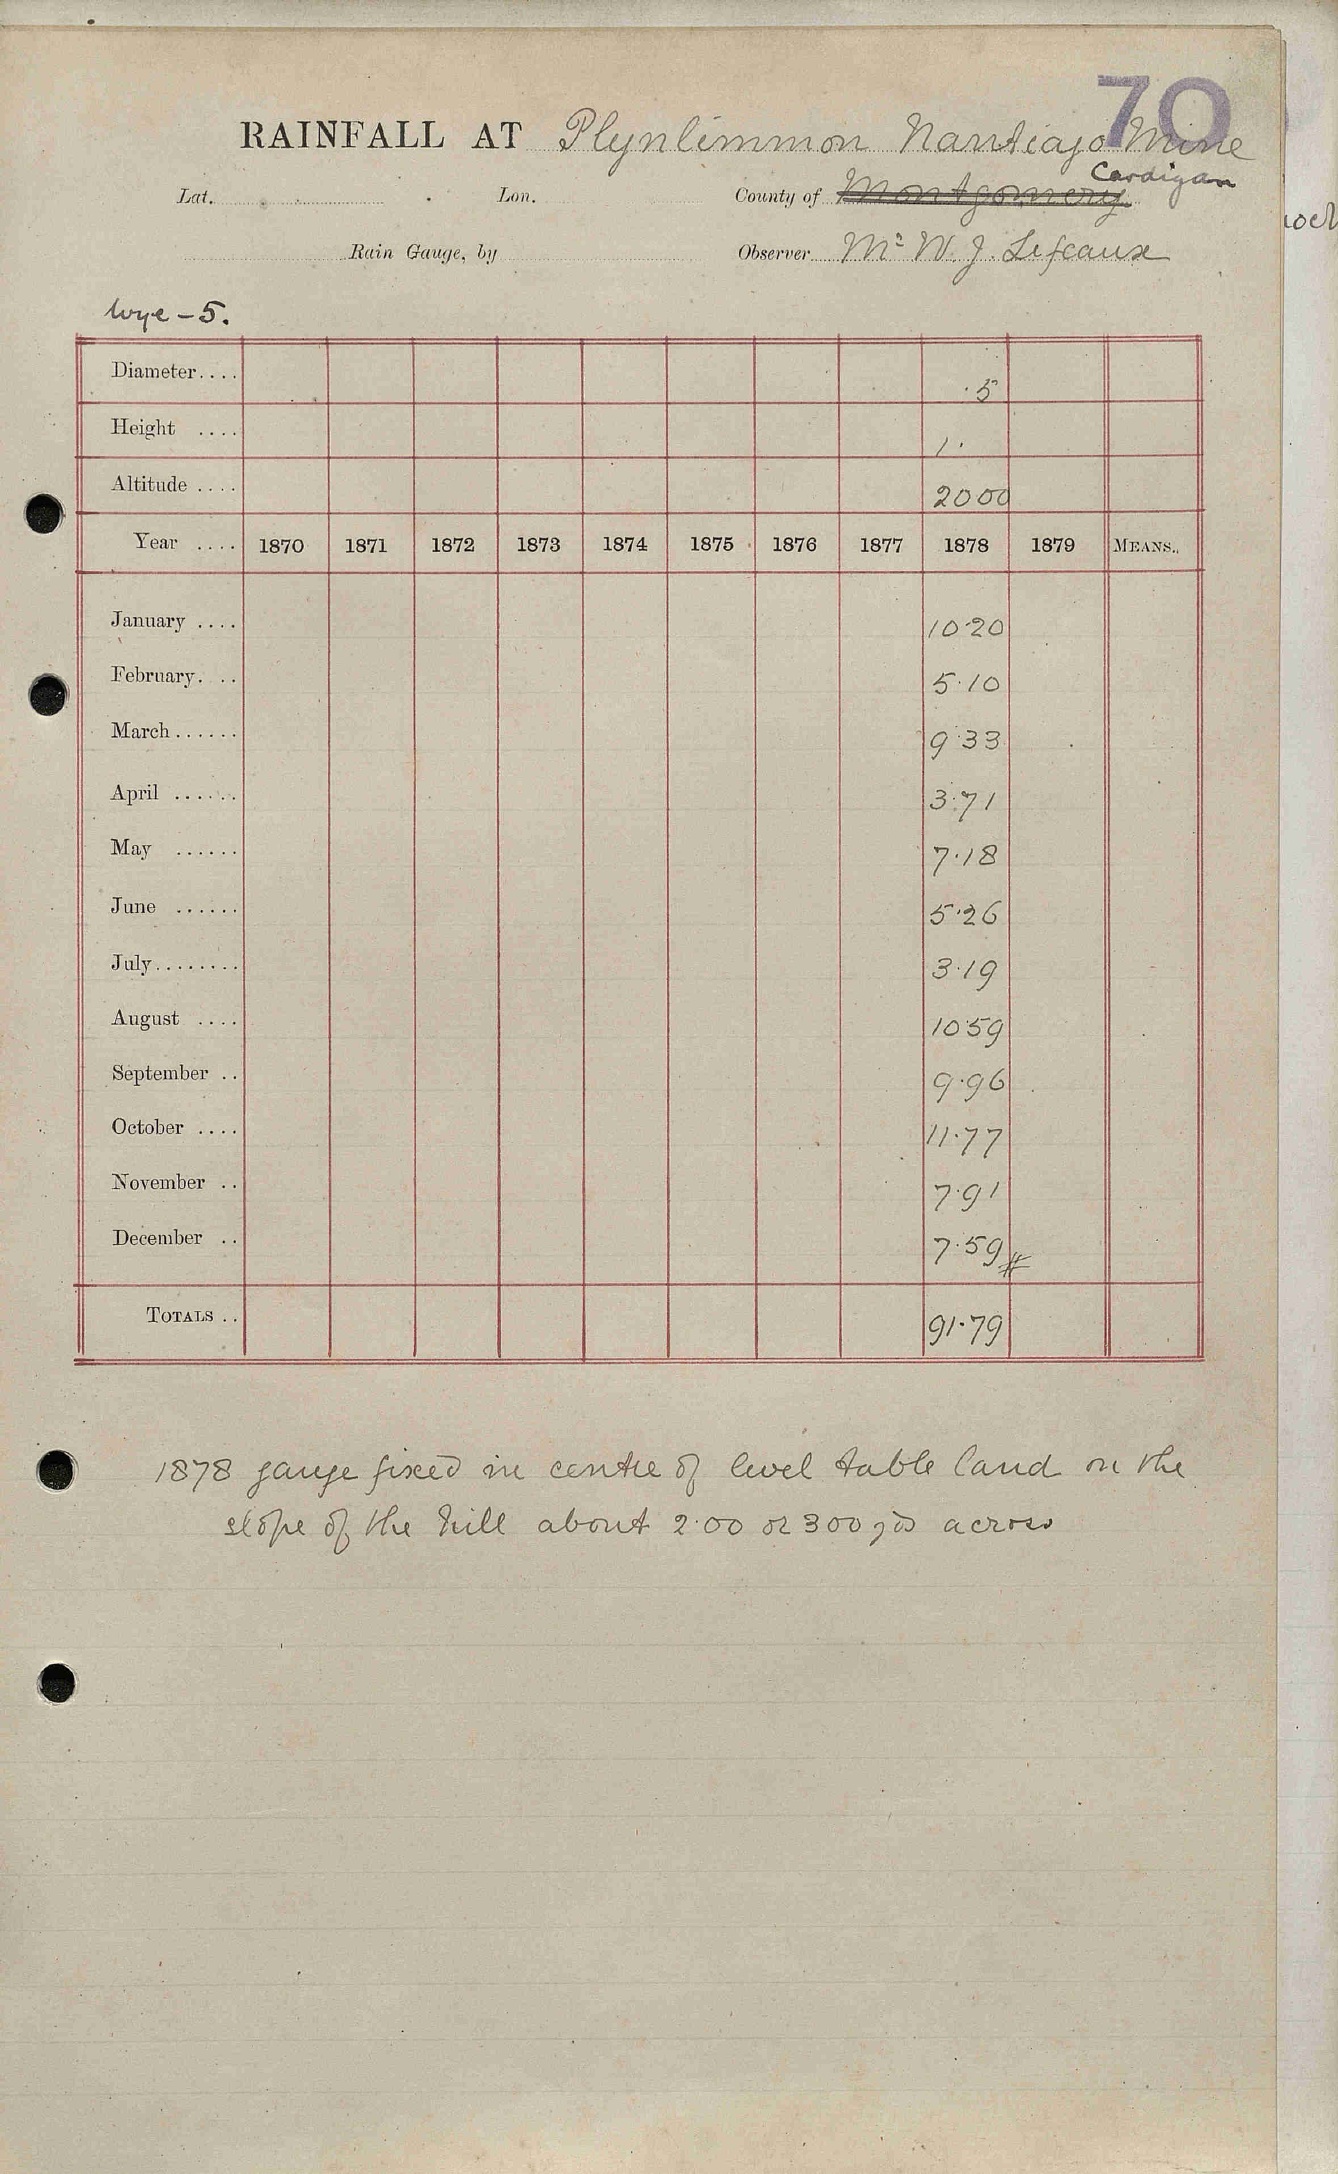 70
RAINFALL AT Plynlimmon Nantiago Mine
Cardigan
Lat. Lon. County of Montgomery
Rain Gauge, by Observer Mr W. J. Lefeaux
Wye - 5.
Diameter.... ·5
Height .... 1·
Altitude .... 2000
Year .... 1870 1871 1872 1873 1874 1875 1876 1877 1878 1879 MEANS..
January .... 10·20
February. .. 5·10
March...... 9·33
April ...... 3·71
May ...... 7·18
June ...... 5·26
July........ 3·19
August .... 10·59
September .. 9·96
October .... 11·77
November .. 7·91
December .. 7·59 #
TOTALS .. 91·79
1878 gauge fixed in centre of level table land on the
slope of the hill about 2·00 or 300 yds across